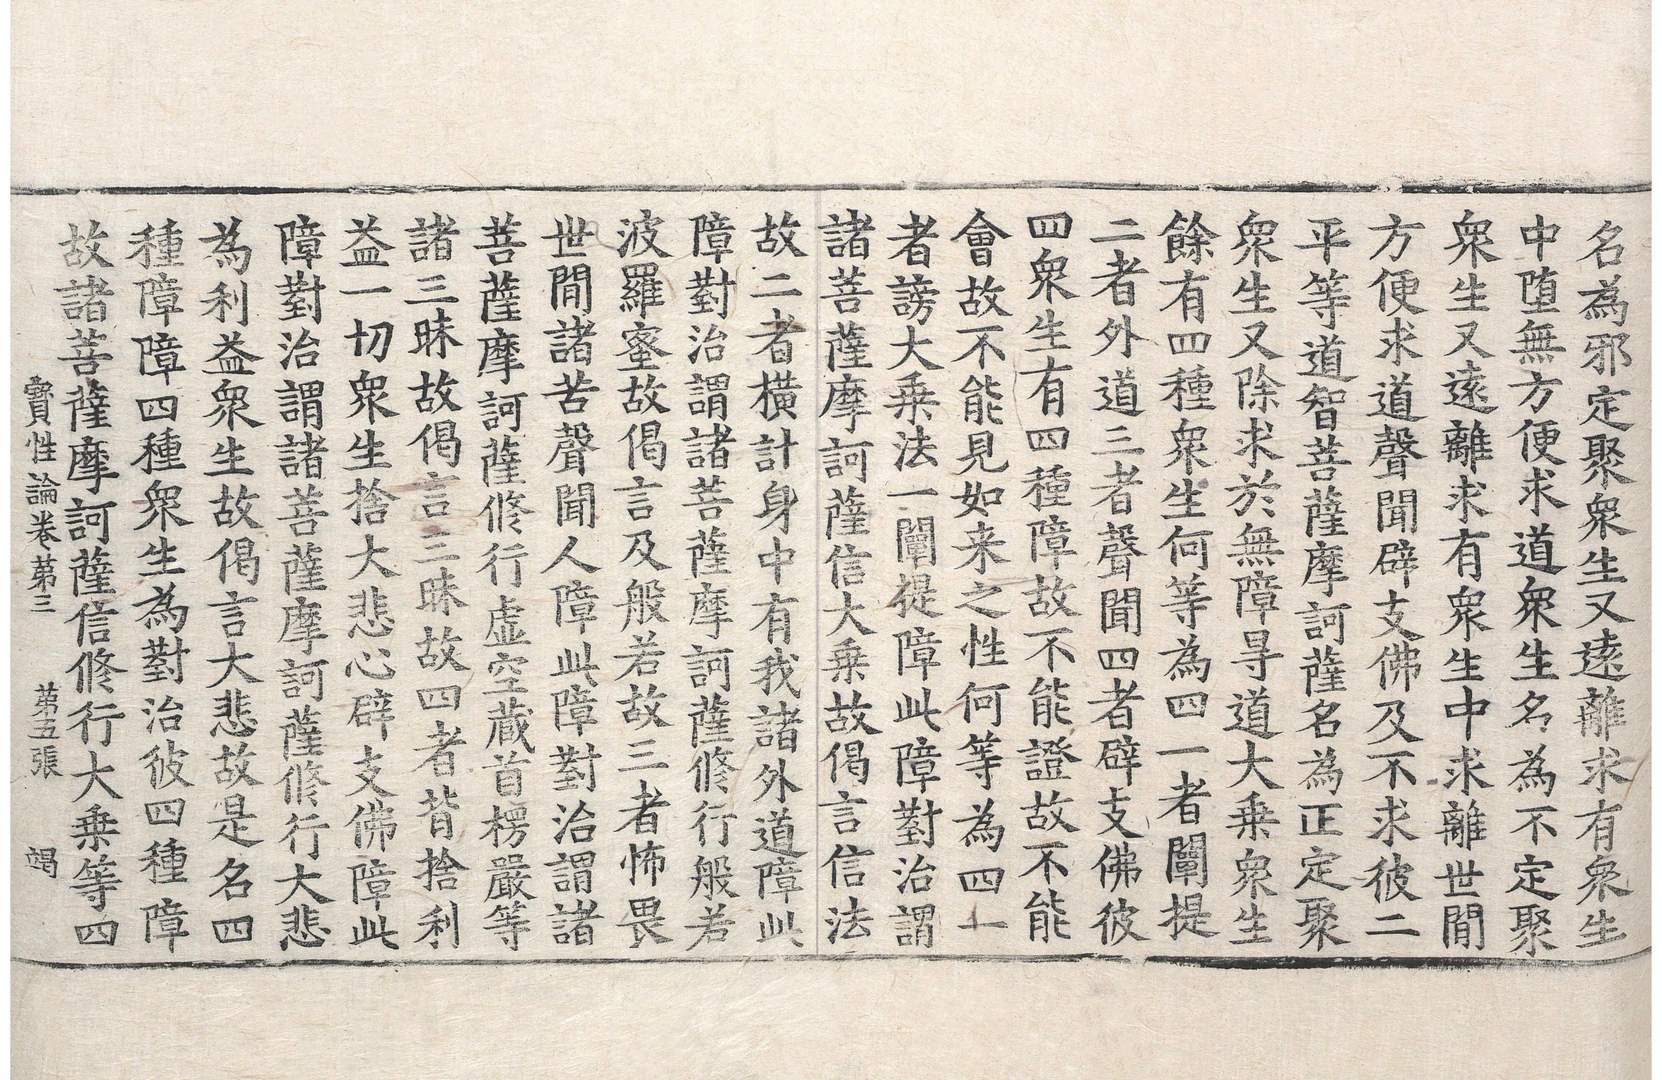 名為邪定聚衆生又遠離求有衆生
中墮無方便求道衆生名為不定聚
衆生又遠離求有衆生中求離世間
方便求道聲聞辟支佛及不求彼二
平等道智菩薩摩訶薩名為正定聚
衆生又除求於無障㝵道大乗衆生
餘有四種衆生何等為四一者闡提
二者外道三者聲聞四者辟支佛彼
四衆生有四種障故不能證故不能
會故不能見如来之性何等為四一
者謗大乗法一闡提障此障對治謂
諸菩薩摩訶薩信大乗故偈言信法
故二者橫計身中有我諸外道障此
障對治謂諸菩薩摩訶薩修行般若
波羅蜜故偈言及般若故三者怖畏
世間諸苦聲聞人障此障對治謂諸
菩薩摩訶薩修行虛空蔵首楞嚴等
諸三昧故偈言三昧故四者背捨利
益一切衆生捨大悲心辟支佛障此
障對治謂諸菩薩摩訶薩修行大悲
為利益衆生故偈言大悲故是名四
種障障四種衆生為對治彼四種障
故諸菩薩摩訶薩信修行大乗等四
寶性論卷第三 第五張 竭